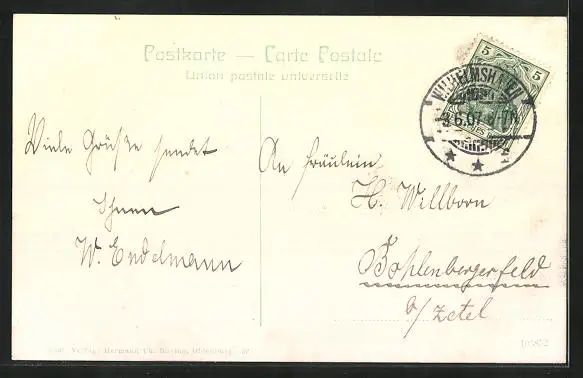 Postkarte — Carte Postale
Union postale universelle
5 5
WILHELMSHAVEN
3.6.07. 6-7N.
Viele Grüße sendet
Ihnen
W. Endelmann
An Fräulein
H. Willborn
Bohlenbergerfeld
b/Zetel
Verlag: Hermann
Oldenburg. 07